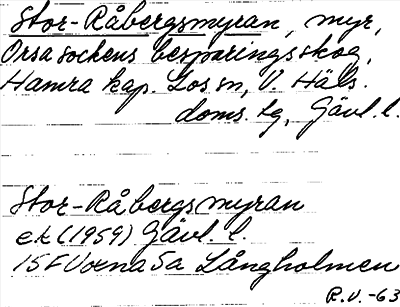 Stor-Råbergsmyran, myr,
Orsa sockens besparingsskog,
Hamra kap. Los sn, V. Häls.
doms. tg, Gävl. l.
Stor-Råbergsmyran
ek (1959) Gävl. l.
15F Voxna 5a Långholmen
R.V. -63